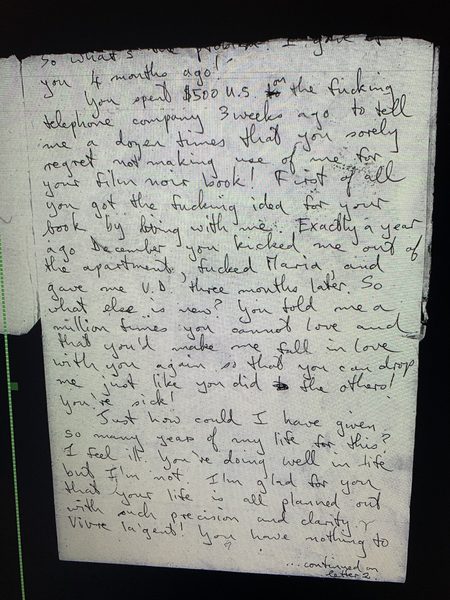 So what's the problem? I gave
you 4 months ago!
You spent $500 U.S. on the fucking
telephone company 3 weeks ago to tell
me a dozen times that you sorely
regret not making use of me for
your film noir book! First of all
you got the fucking idea for your
book by living with me. Exactly a year
ago December you kicked me out of
the apartment, fucked Maria, and
gave me V.D., three months later. So
what else is new? You told me a
million times you cannot love and
that you'd make me fall in love
with you again so that you can drop
me just like you did to the others!
You're sick!
Just how could I have given
so many years of my life for this?
I feel ill. You're doing well in life
but I'm not. I'm glad for you
that your life is all planned out
with such precision and clarity
Vivre l'argent! You have nothing to
?
...continued on
letter 2.